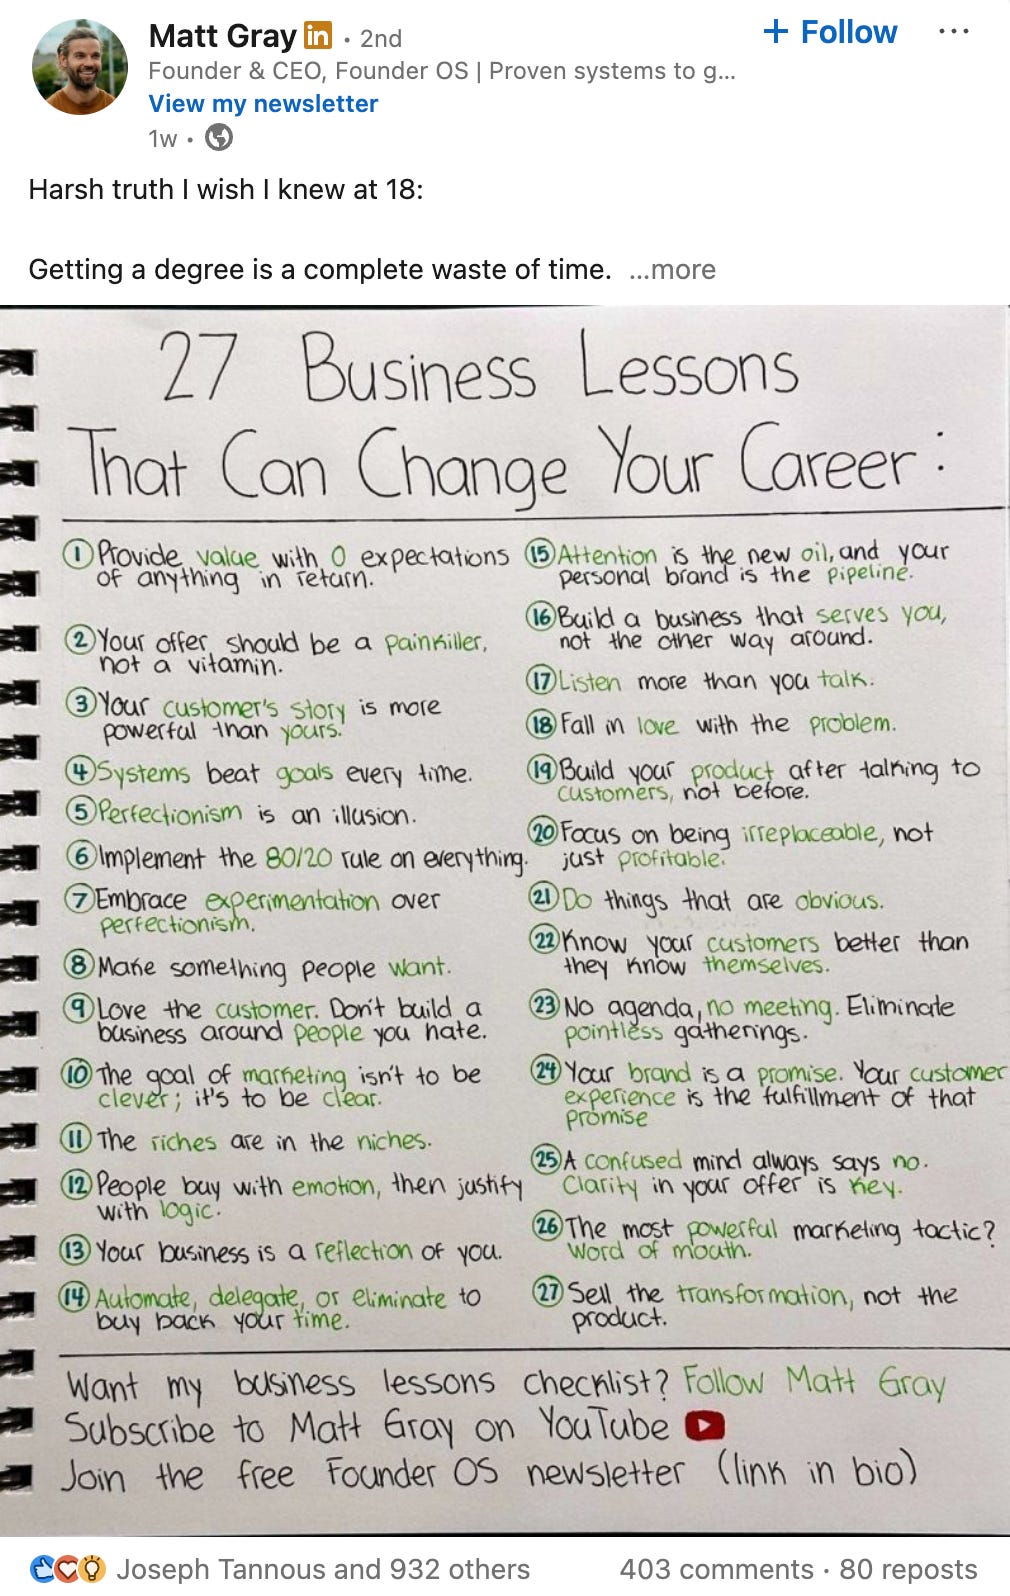 Matt Gray in · 2nd
+ Follow ...
Founder & CEO, Founder OS | Proven systems to g...
View my newsletter
1w ·
Harsh truth I wish I knew at 18:
Getting a degree is a complete waste of time. ...more
27 Business Lessons
That Can Change Your Career:
1 Provide value with 0 expectations
of anything in return.
2 Your offer should be a painkiller,
not a vitamin.
3 Your customer's story is more
powerful than yours.
4 Systems beat goals every time.
5 Perfectionism is an illusion.
6 Implement the 80/20 rule on everything.
7 Embrace experimentation over
perfectionism.
8 Make something people want.
9 Love the customer. Don't build a
business around people you hate.
10 The goal of marketing isn't to be
clever; it's to be clear.
11 The riches are in the niches.
12 People buy with emotion, then justify
with logic.
13 Your business is a reflection of you.
14 Automate, delegate, or eliminate to
buy back your time.
15 Attention is the new oil, and your
personal brand is the pipeline.
16 Build a business that serves you,
not the other way around.
17 Listen more than you talk.
18 Fall in love with the problem.
19 Build your product after talking to
customers, not before.
20 Focus on being irreplaceable, not
just profitable.
21 Do things that are obvious.
22 Know your customers better than
they know themselves.
23 No agenda, no meeting. Eliminate
pointless gatherings.
24 Your brand is a promise. Your customer
experience is the fulfillment of that
promise
25 A confused mind always says no.
Clarity in your offer is key.
26 The most powerful marketing tactic?
Word of mouth.
27 Sell the transformation, not the
product.
Want my business lessons checklist? Follow Matt Gray
Subscribe to Matt Gray on YouTube
Join the free Founder OS newsletter (link in bio)
Joseph Tannous and 932 others
403 comments · 80 reposts